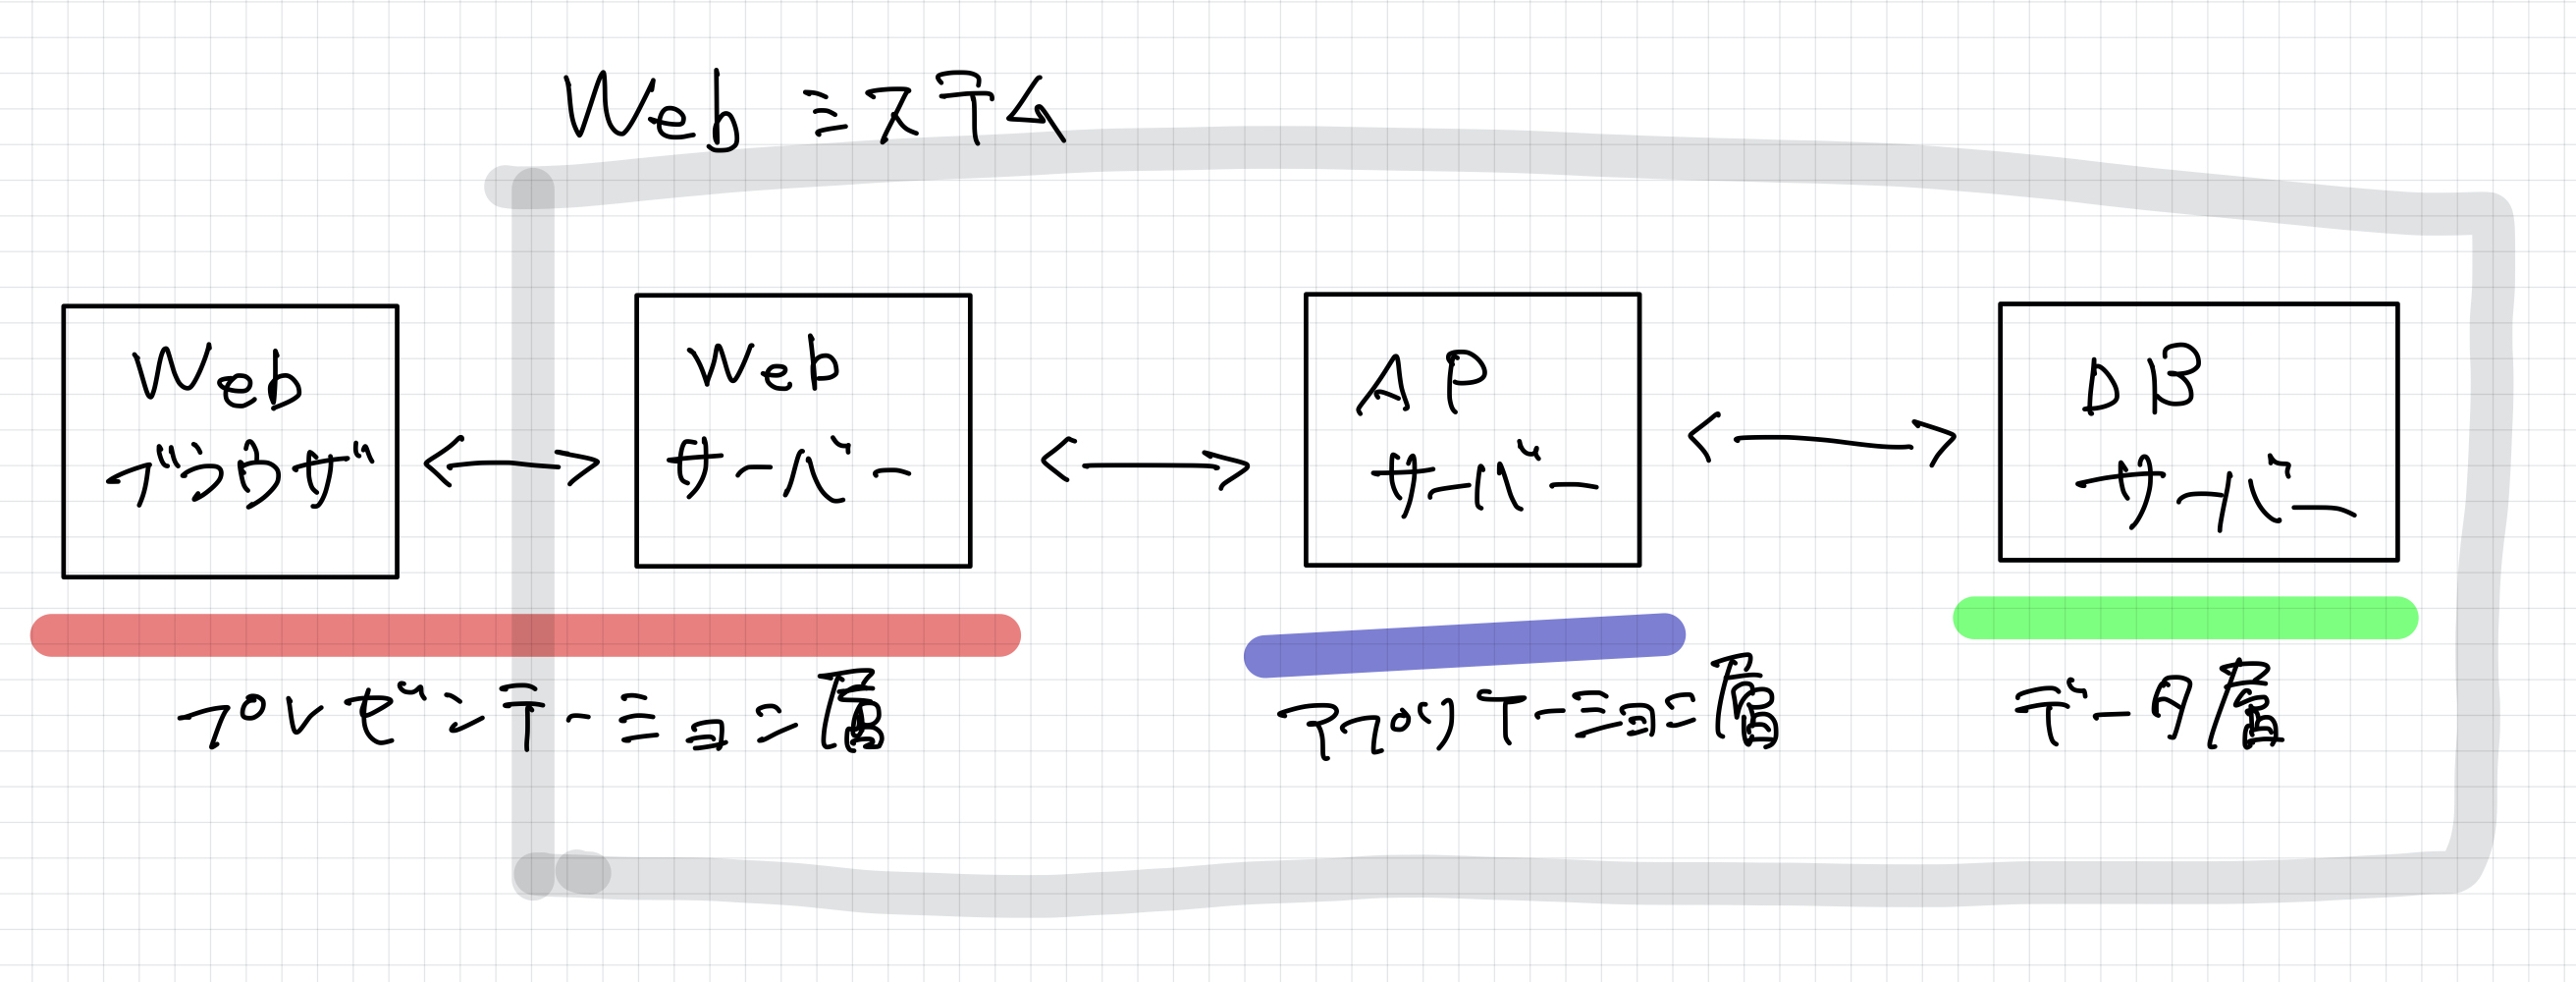 Web システム
Web
ブラウザ
Web
サーバー
AP
サーバー
DB
サーバー
プレゼンテーション層
アプリケーション層
データ層